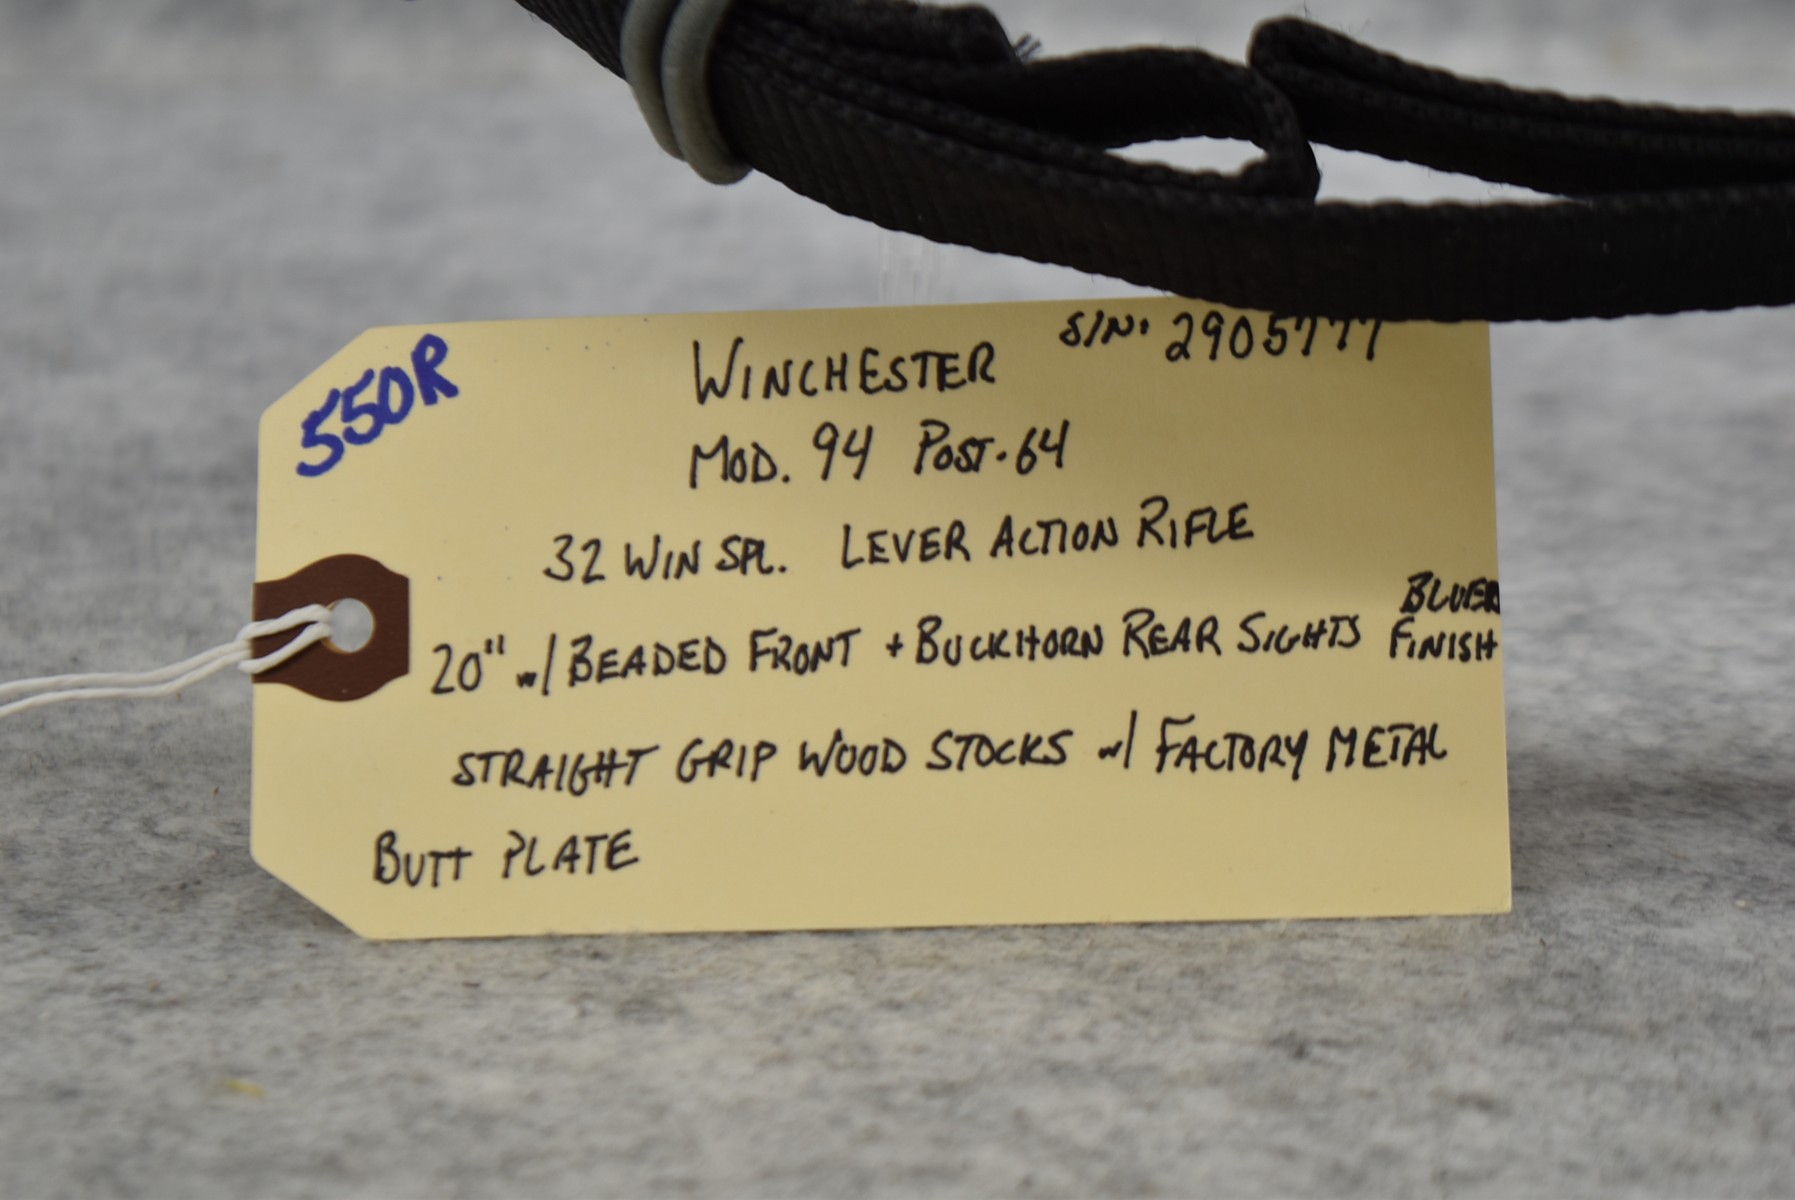 550R
WINCHESTER S/N. 2905777
MOD. 94 POST-64
32 WIN SPL. LEVER ACTION RIFLE
20" w/ BEADED FRONT + BUCKHORN REAR SIGHTS BLUED FINISH
STRAIGHT GRIP WOOD STOCKS w/ FACTORY METAL
BUTT PLATE